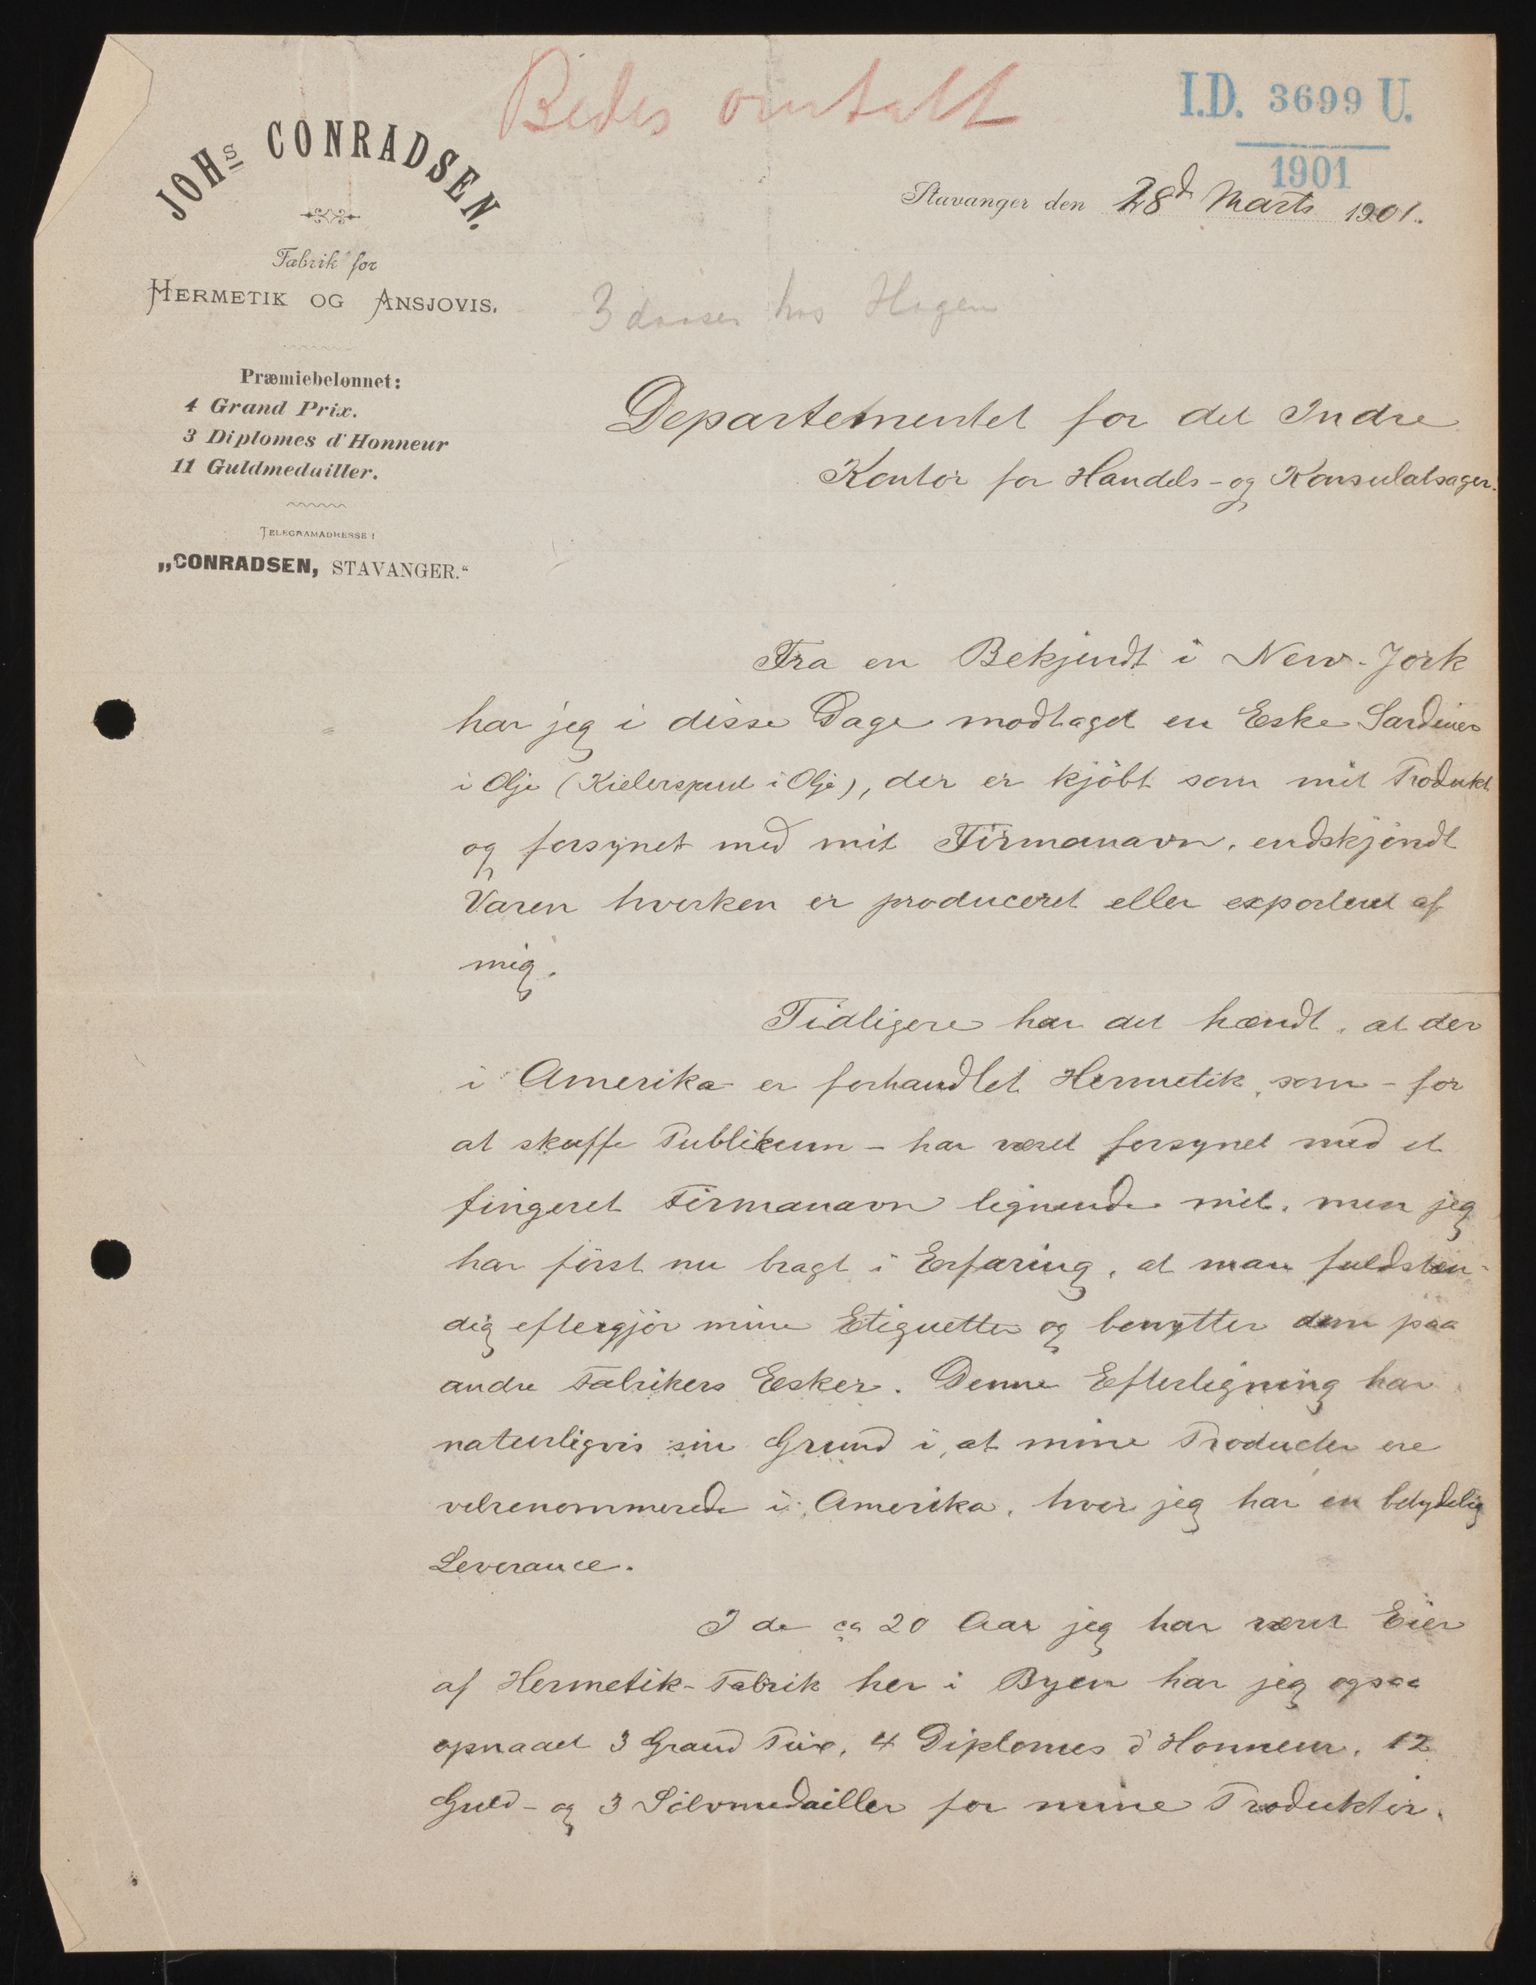 Bedes omtalt
I.D. 3699 U.
1901
JOHs CONRADSEN.
Fabrik for
HERMETIK OG ANSJOVIS.
Præmiebelønnet:
4 Grand Prix.
3 Diplomes d'Honneur
11 Guldmedailler.
TELEGRAMADRESSE:
„CONRADSEN, STAVANGER.“
Stavanger den 28d Marts 1901.
3 daaser hos Hagen
Departementet for det Indre
Kontor for Handels- og Konsulatsager.
Fra en Bekjendt i New-York
har jeg i disse Dage modtaget en Eske Sardiner
i Olje (Kielersprut i Olje), der er kjöbt som mit Produkt
og forsynet med mit Firmanavn, endskjöndt
Varen hverken er produceret eller exporteret af
mig.
Tidligere har det hændt, at der
i Amerika er forhandlet Hermetik, som – for
at skuffe Publikum – har været forsynet med et
fingeret Firmanavn lignende mit, men jeg
har först nu bragt i Erfaring, at man fuldstæn-
dig eftergjör mine Etiquetter og benytter dem paa
andre Fabrikers Esker. Denne Efterligning har
naturligvis sin Grund i, at mine Producter ere
velrenommerede i Amerika, hvor jeg har en betydelig
Leverance.
I de ca 20 Aar jeg har været Eier
af Hermetik-Fabrik her i Byen har jeg ogsaa
opnaaet 3 Grand Prix, 4 Diplomes d'Honneur, 12
Guld- og 3 Sölvmedailler for mine Produkter.